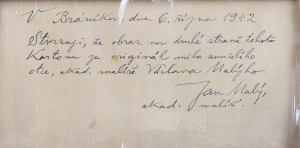 V Bráníku, dne 6. října 1942
Stvrzuji, že obraz na druhé straně tohoto
kartonu je originál mého zemřelého
otce, akad. malíře Václava Malého.
Jan Malý,
akad. malíř.